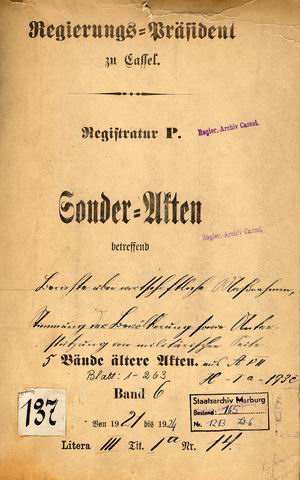 Regierungs=Präsident
zu Cassel.
Registratur P.
Regier.-Archiv Cassel.
Sonder=Akten
Regier.-Archiv Cassel.
betreffend
Berichte über wirtschaftliche Maßnahmen,
Stimmung der Bevölkerung sowie Unter-
stützung von militärischer Seite
5 Bände ältere Akten. aus A II
Blatt: 1-263
Band 6
137
Von 1921 bis 1924
Staatsarchiv Marburg
Bestand: 165
Nr. 1213
Litera III Tit. 1a Nr. 14.